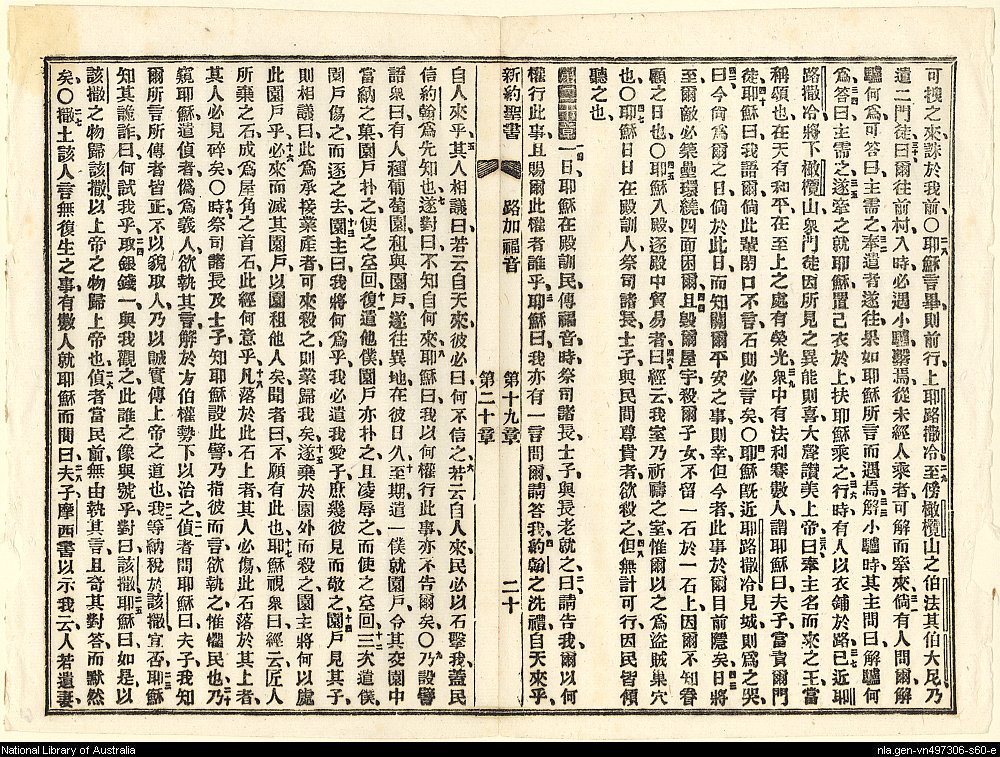 可搜之來誅於我前〇耶穌言畢則前行上耶路撒冷至傍橄欖山之伯法其伯大尼乃
遣二門徒曰爾往前村入時必遇小驢繫焉從未經人乘者可解而牽來倘有人問爾解
驢何為可答曰主需之奉遣者遂往果如耶穌所言而遇焉解小驢時其主問曰解驢何
為答曰主需之遂牽之就耶穌置己衣於上扶耶穌乘之行時有人以衣鋪於路已近耶
路撒冷將下橄欖山衆門徒因所見之異能則喜大聲讚美上帝曰奉主名而來之王當
稱頌也在天有和平在至上之處有榮光衆中有法利賽數人謂耶穌曰夫子當責爾門
徒耶穌曰我語爾倘此輩閉口不言石則必言矣〇耶穌既近耶路撒冷見城則為之哭
曰今尚為爾之日倘於此日而知關爾平安之事則幸但今者此事於爾目前隱矣日將
至爾敵必築壘環繞四面困爾且毀爾屋宇殺爾子女不留一石於一石上因爾不知眷
顧之日也〇耶穌入殿逐殿中貿易者曰經云我室乃祈禱之室惟爾以之為盜賊巢穴
也〇耶穌日日在殿訓人祭司諸長士子與民間尊貴者欲殺之但無計可行因民皆傾
聽之也
一日耶穌在殿訓民傳福音時祭司諸長士子與長老就之曰請告我爾以何
權行此事且賜爾此權者誰乎耶穌曰我亦有一言問爾請答我約翰之洗禮自天來乎
新約聖書 路加福音 第十九章 第二十章 二十
自人來乎其人相議曰若云自天來彼必曰何不信之若云自人來民必以石擊我蓋民
信約翰為先知也遂對曰不知自何來耶穌曰我以何權行此事亦不告爾矣〇乃設譬
語衆曰有人種葡萄園租與園戶遂往異地在彼日久至期遣一僕就園戶令其交園中
當納之菓園戶扑之使之空回復遣他僕園戶亦扑之且凌辱之而使之空回三次遣僕
園戶傷之而逐之去園主曰我將何為乎我必遣我愛子庶幾彼見而敬之園戶見其子
則相議曰此為承接業產者可來殺之則業歸我矣遂棄於園外而殺之園主將何以處
此園戶乎必來而滅其園戶以園租他人矣聞者曰不願有此也耶穌視衆曰經云匠人
所棄之石成為屋角之首石此經何意乎凡落於此石上者其人必傷此石落於其上者
其人必見碎矣〇時祭司諸長及士子知耶穌設此譬乃指彼而言欲執之惟懼民也乃
窺耶穌遣偵者偽為義人欲執其言解於方伯權勢下以治之偵者問耶穌曰夫子我知
爾所言所傳者皆正不以貌取人乃以誠實傳上帝之道也我等納稅於該撒宜否耶穌
知其詭詐曰何試我乎取銀錢一與我觀之此誰之像與號乎對曰該撒耶穌曰如是以
該撒之物歸該撒以上帝之物歸上帝也偵者當民前無由執其言且奇其對答而默然
矣〇撒土該人言無復生之事有數人就耶穌而問曰夫子摩西書以示我云人若遺妻
National Library of Australia
nla.gen-vn497306-s60-e